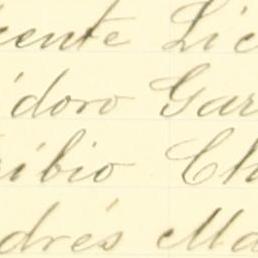 icente Lic
idoro Gar
ribio Ch
drés Ma